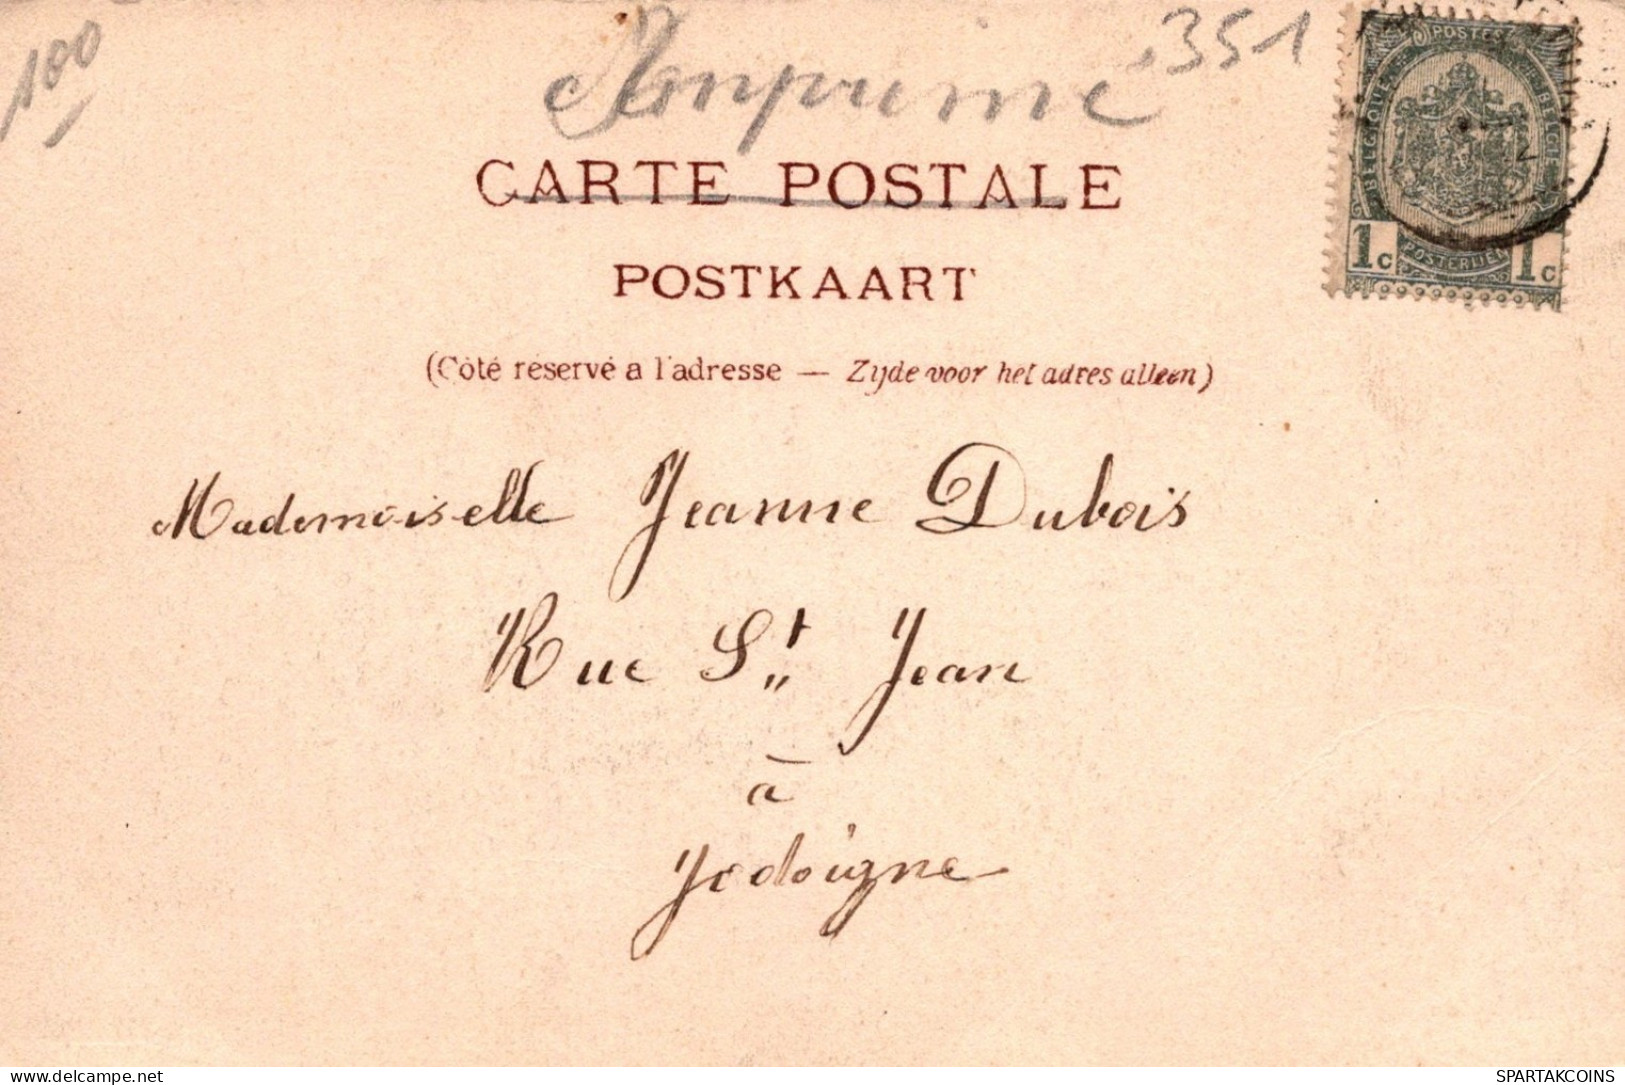 100
Imprimé
351
POSTES
BELGIQUE
BELGIË
1c POSTERIJEN 1c
CARTE POSTALE
POSTKAART
(Côté réservé a l'adresse — Zijde voor het adres alleen)
Mademoiselle Jeanne Dubois
Rue St. Jean
à
Jodoigne
www.delcampe.net
SPARTAKCOINS